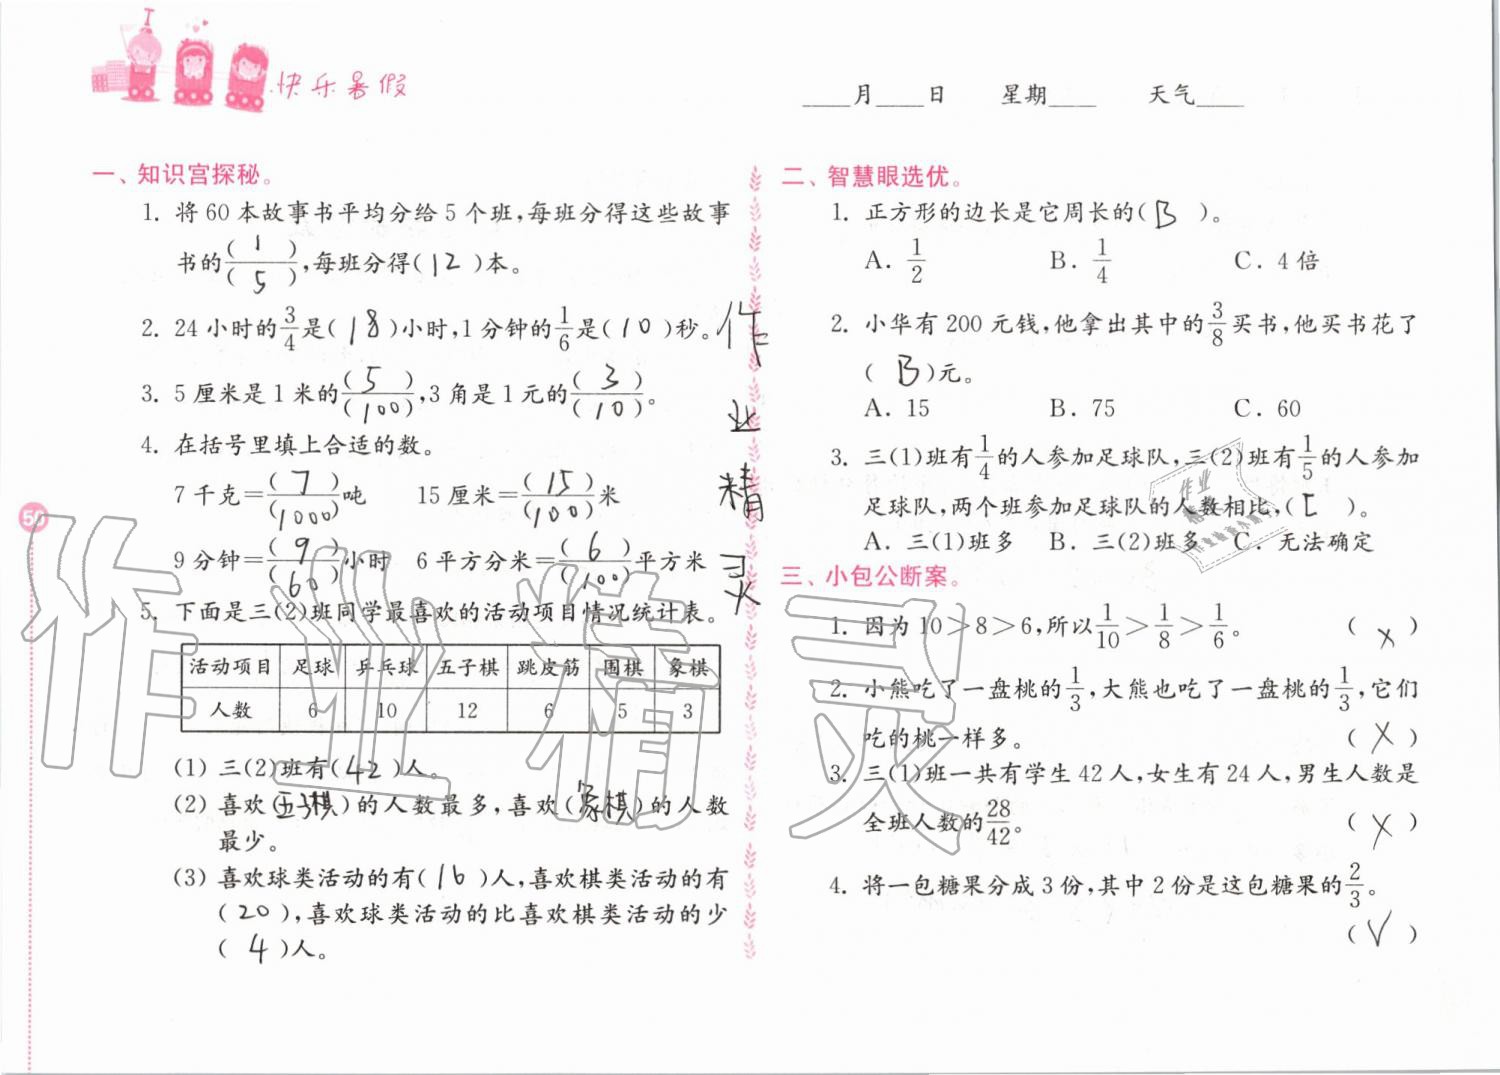 快乐暑假
____月____日 星期____ 天气____
一、知识宫探秘。
1. 将 60 本故事书平均分给 5 个班,每班分得这些故事
书的(1)/(5),每班分得(12)本。
2. 24 小时的3/4是(18)小时,1 分钟的1/6是(10)秒。
3. 5 厘米是 1 米的(5)/(100),3 角是 1 元的(3)/(10)。
4. 在括号里填上合适的数。
7 千克=(7)/(1000)吨 15 厘米=(15)/(100)米
9 分钟=(9)/(60)小时 6 平方分米=(6)/(100)平方米
5. 下面是三(2)班同学最喜欢的活动项目情况统计表。
活动项目 足球 乒乓球 五子棋 跳皮筋 围棋 象棋
人数 6 10 12 6 5 3
(1) 三(2)班有(42)人。
(2) 喜欢(五子棋)的人数最多,喜欢(象棋)的人数
最少。
(3) 喜欢球类活动的有(16)人,喜欢棋类活动的有
(20),喜欢球类活动的比喜欢棋类活动的少
(4)人。
50
作业精灵
二、智慧眼选优。
1. 正方形的边长是它周长的(B)。
A. 1/2 B. 1/4 C. 4 倍
2. 小华有 200 元钱,他拿出其中的3/8买书,他买书花了
(B)元。
A. 15 B. 75 C. 60
3. 三(1)班有1/4的人参加足球队,三(2)班有1/5的人参加
足球队,两个班参加足球队的人数相比,(C)。
A. 三(1)班多 B. 三(2)班多 C. 无法确定
三、小包公断案。
1. 因为 10>8>6,所以1/10>1/8>1/6。 (×)
2. 小熊吃了一盘桃的1/3,大熊也吃了一盘桃的1/3,它们
吃的桃一样多。 (×)
3. 三(1)班一共有学生 42 人,女生有 24 人,男生人数是
全班人数的28/42。 (×)
4. 将一包糖果分成 3 份,其中 2 份是这包糖果的2/3。
(√)
作业精灵
作业